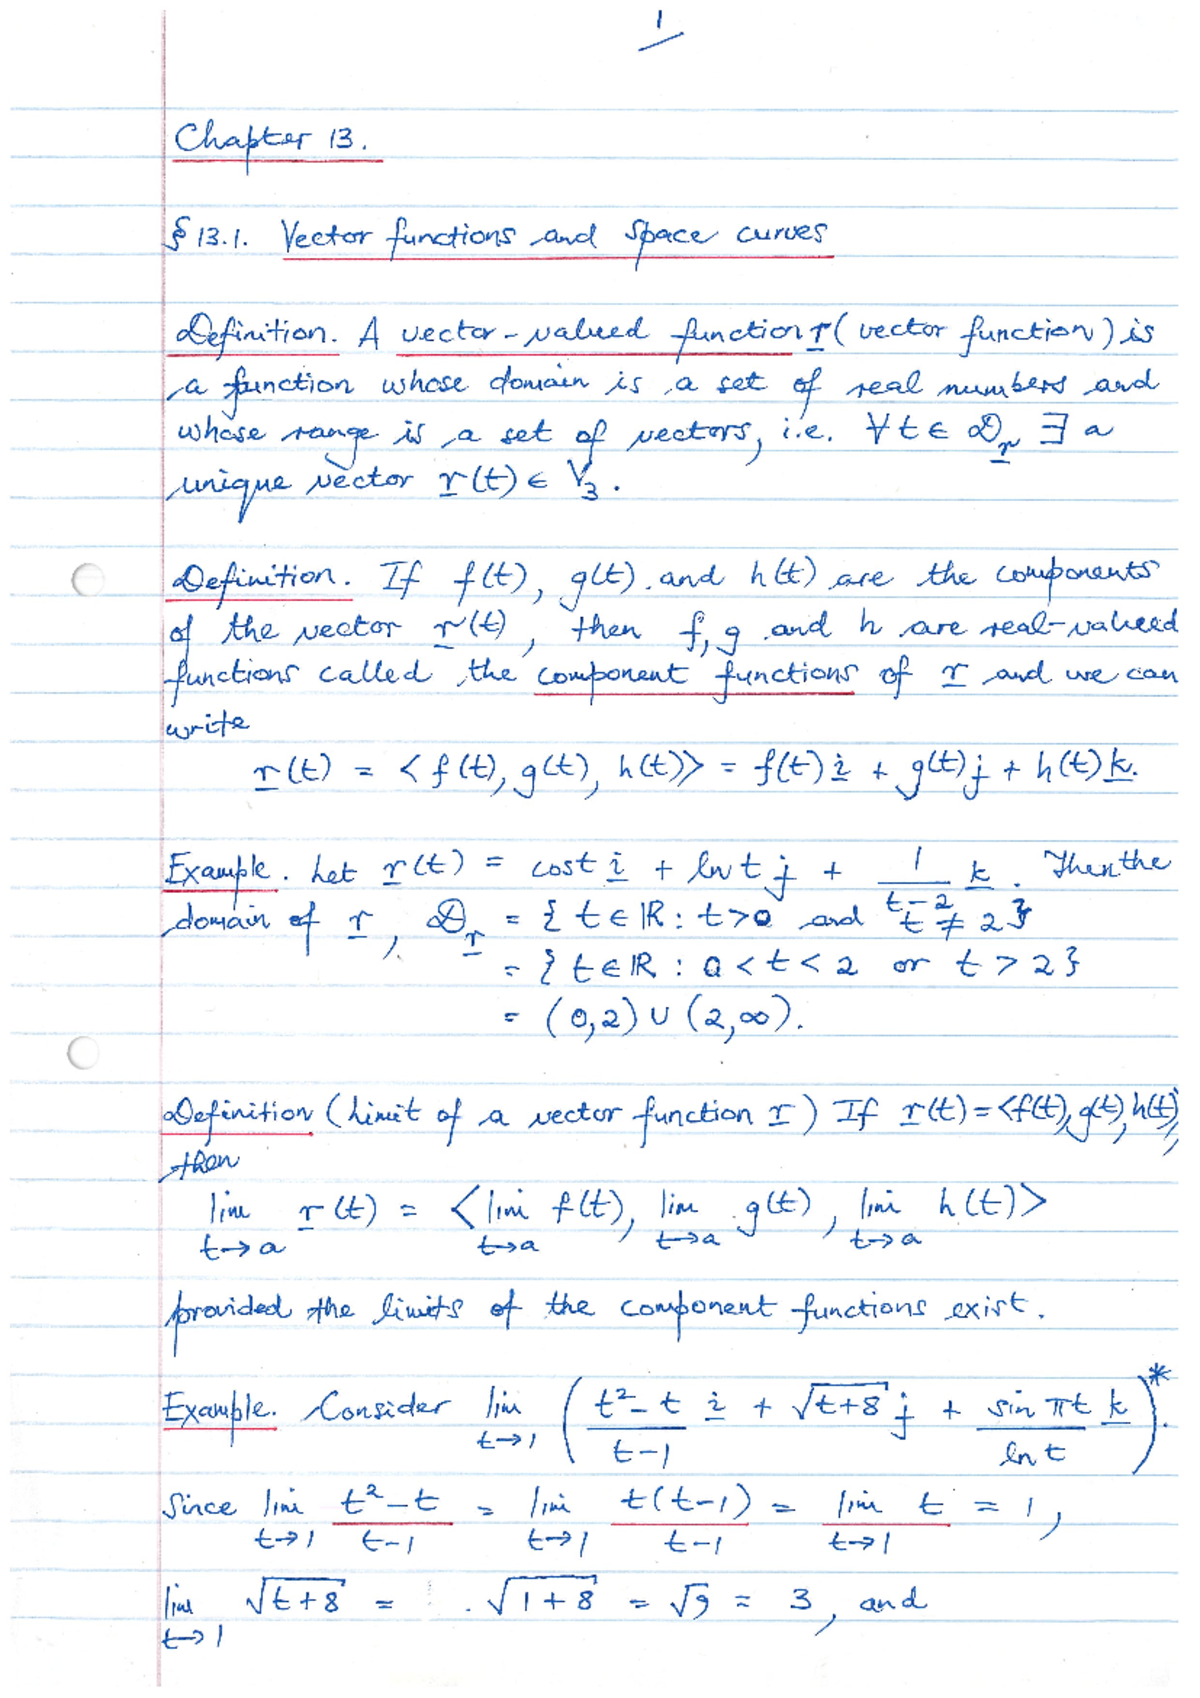 1
Chapter 13.
§ 13.1. Vector functions and space curves
Definition. A vector-valued function r (vector function) is
a function whose domain is a set of real numbers and
whose range is a set of vectors, i.e. ∀ t ∈ D_r ∃ a
unique vector r(t) ∈ V₃.
Definition. If f(t), g(t) and h(t) are the components
of the vector r(t), then f, g and h are real-valued
functions called the component functions of r and we can
write
r(t) = <f(t), g(t), h(t)> = f(t) i + g(t) j + h(t) k.
Example. Let r(t) = cost i + ln t j + 1/(t-2) k. Then the
domain of r, D_r = { t ∈ ℝ : t>0 and t ≠ 2 }
= { t ∈ ℝ : 0 < t < 2 or t > 2 }
= (0,2) ∪ (2,∞).
Definition (Limit of a vector function r) If r(t) = <f(t), g(t), h(t)>,
then
lim t→a r(t) = < lim t→a f(t), lim t→a g(t), lim t→a h(t) >
provided the limits of the component functions exist.
Example. Consider lim t→1 ( (t²-t)/(t-1) i + √(t+8) j + (sin πt)/(ln t) k )*.
Since lim t→1 (t²-t)/(t-1) = lim t→1 t(t-1)/(t-1) = lim t→1 t = 1,
lim t→1 √(t+8) = √(1+8) = √9 = 3, and